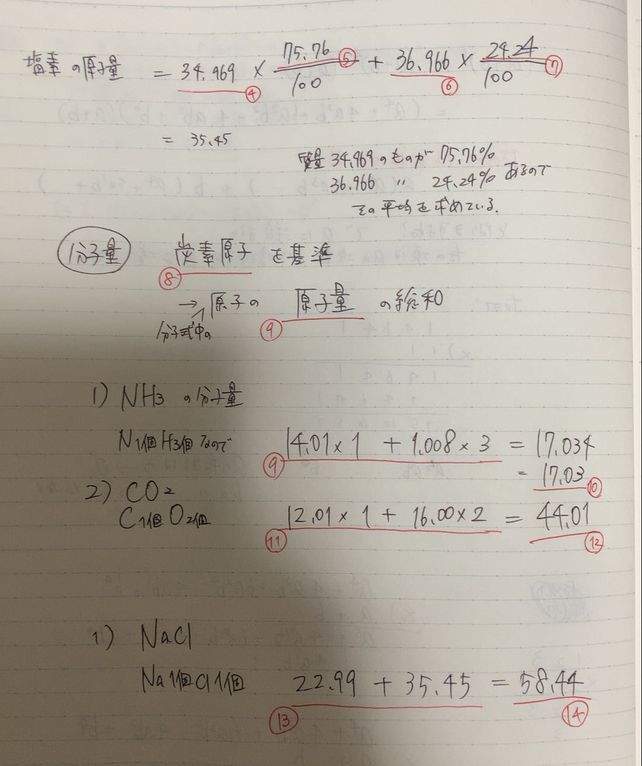 塩素の原子量 = 34.969 × 75.76/100 + 36.966 × 24.24/100
④ ⑤ ⑥ ⑦
= 35.45
質量 34.969のものが 75.76%
36.966 〃 24.24% あるので
その平均を求めている.
分子量 炭素原子 を基準
⑧
→ 原子の 原子量 の総和
分子式中の ⑨
1) NH3 の分子量
N1個H3個なので 14.01×1 + 1.008×3 = 17.034
⑨ = 17.03 ⑩
2) CO2
C1個O2個 12.01×1 + 16.00×2 = 44.01
⑪ ⑫
1) NaCl
Na1個Cl1個 22.99 + 35.45 = 58.44
⑬ ⑭